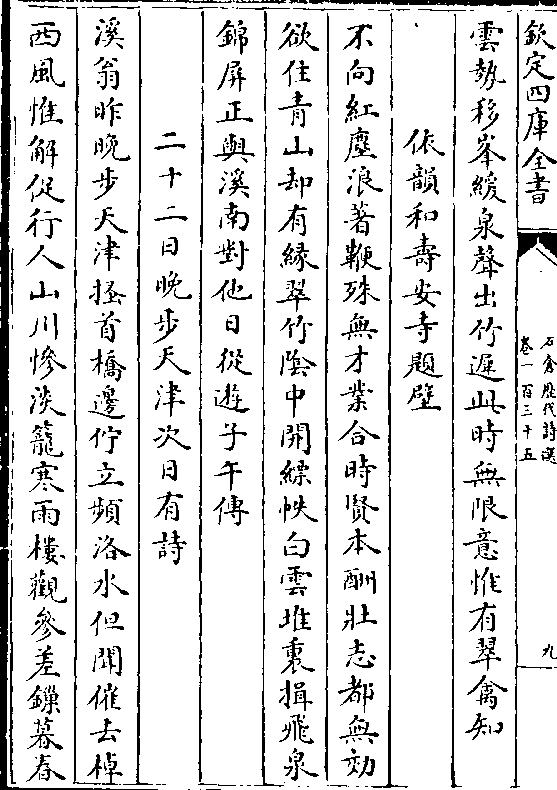 欽定四庫全書
石倉歷代詩選
卷一百三十五
九
雲勢移峯緩泉聲出竹遲此時無限意惟有翠禽知
依韻和壽安寺題壁
不向紅塵浪著鞭殊無才業合時賢本酬壯志都無効
欲住青山却有緣翠竹隂中開縹帙白雲堆裏揖飛泉
錦屏正與溪南對他日從遊子午傳
二十二日晚步天津次日有詩
溪翁昨晚步天津搔首橋邊佇立頻洛水但聞催去棹
西風惟解促行人山川慘淡籠寒雨樓觀參差鏁暮春